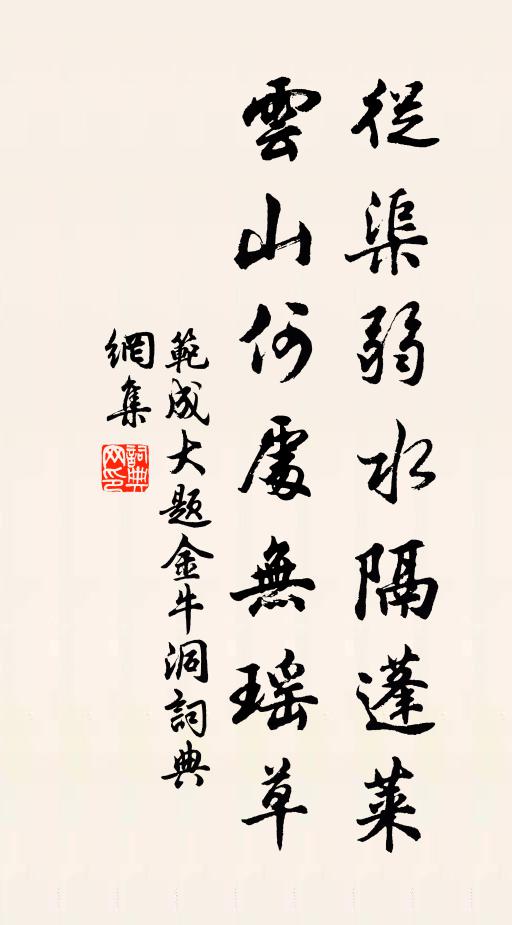 從渠弱水隔蓬萊
雲山何處無瑤草
範成大题金牛洞詞典
網集
詞典网印